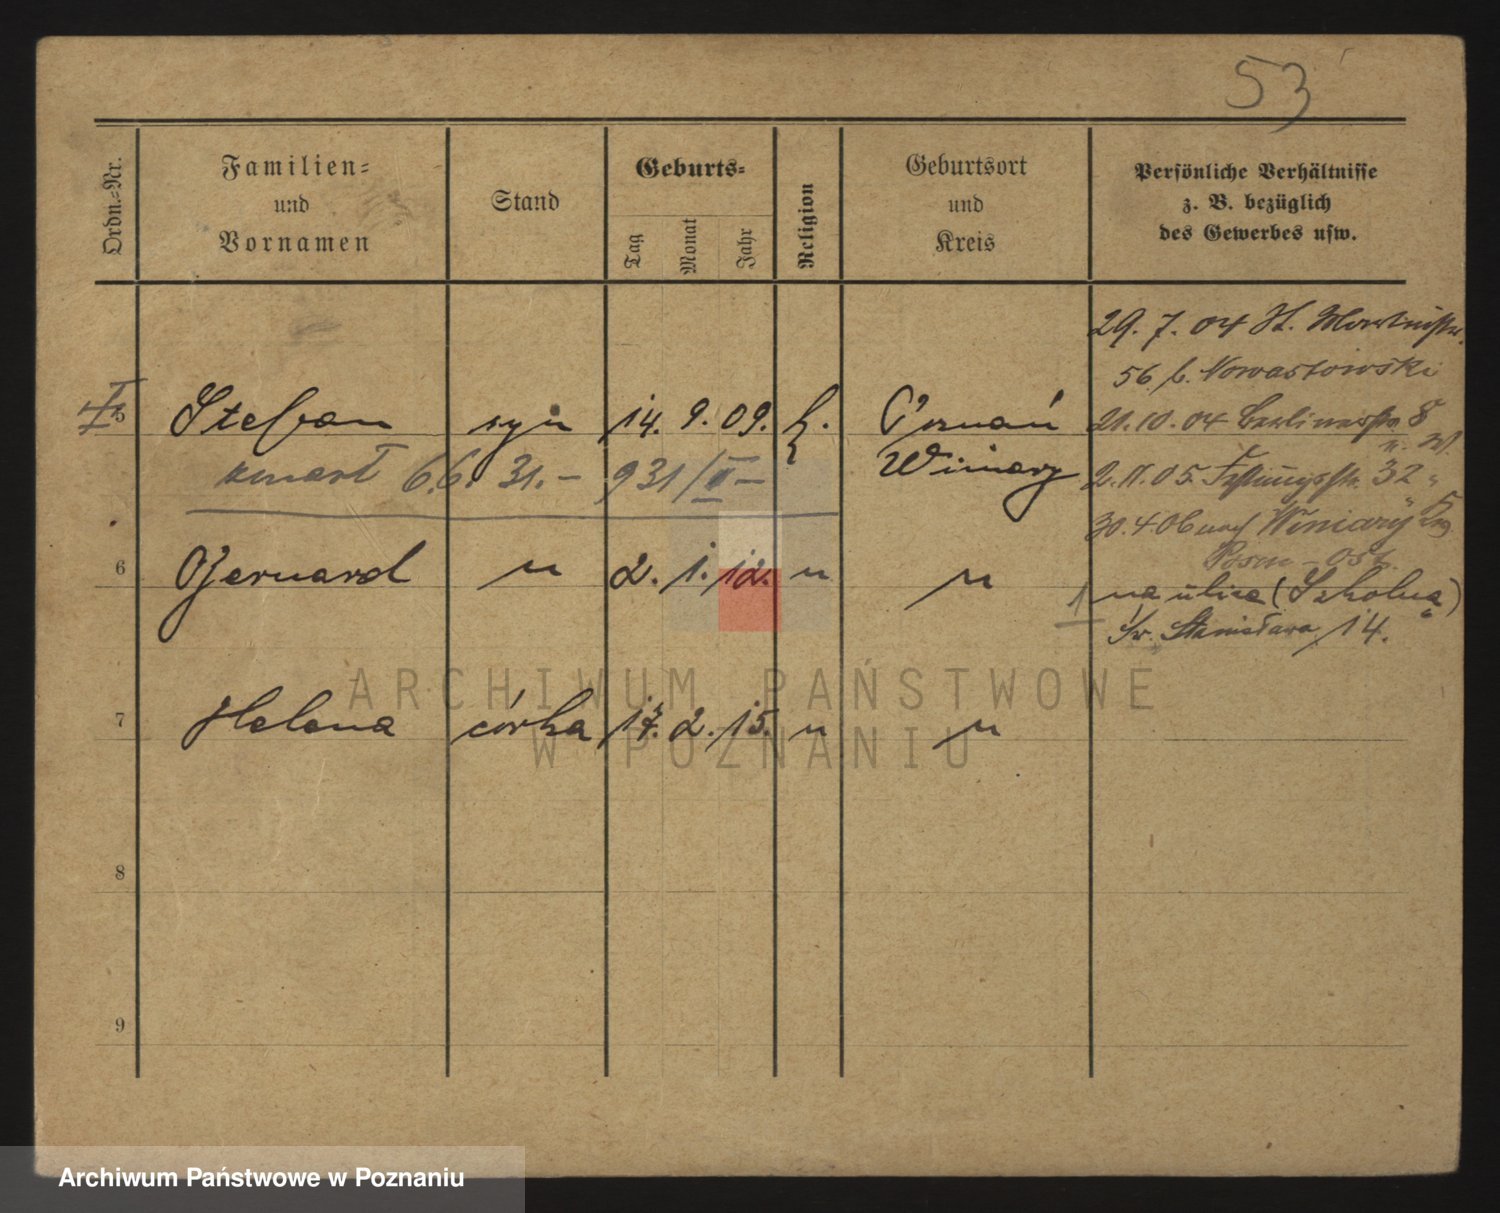 53
Ordn.-Nr.
Familien-
und
Vornamen
Stand
Geburts-
Tag
Monat
Jahr
Religion
Geburtsort
und
Kreis
Persönliche Verhältnisse
z. B. bezüglich
des Gewerbes usw.
29. 7. 04 St. Martinstr.
56 b. Nowastowski
5 Stefan syn 14. 9. 09. k. Poznań
21.10.04 Berlinerstr. 8
Winiary
zmarł 6.6. 31.- 931/II-
2.11.05. Festungsstr. 32
30.4.06 nach Winiary
Posen-Ost.
6 Bernard " 2. 1. 12. " "
na ulica (Szkolna)
Św. Stanisława 14.
7 Helena córka 17. 2. 15. " "
8
9
ARCHIWUM PAŃSTWOWE
W POZNANIU
Archiwum Państwowe w Poznaniu